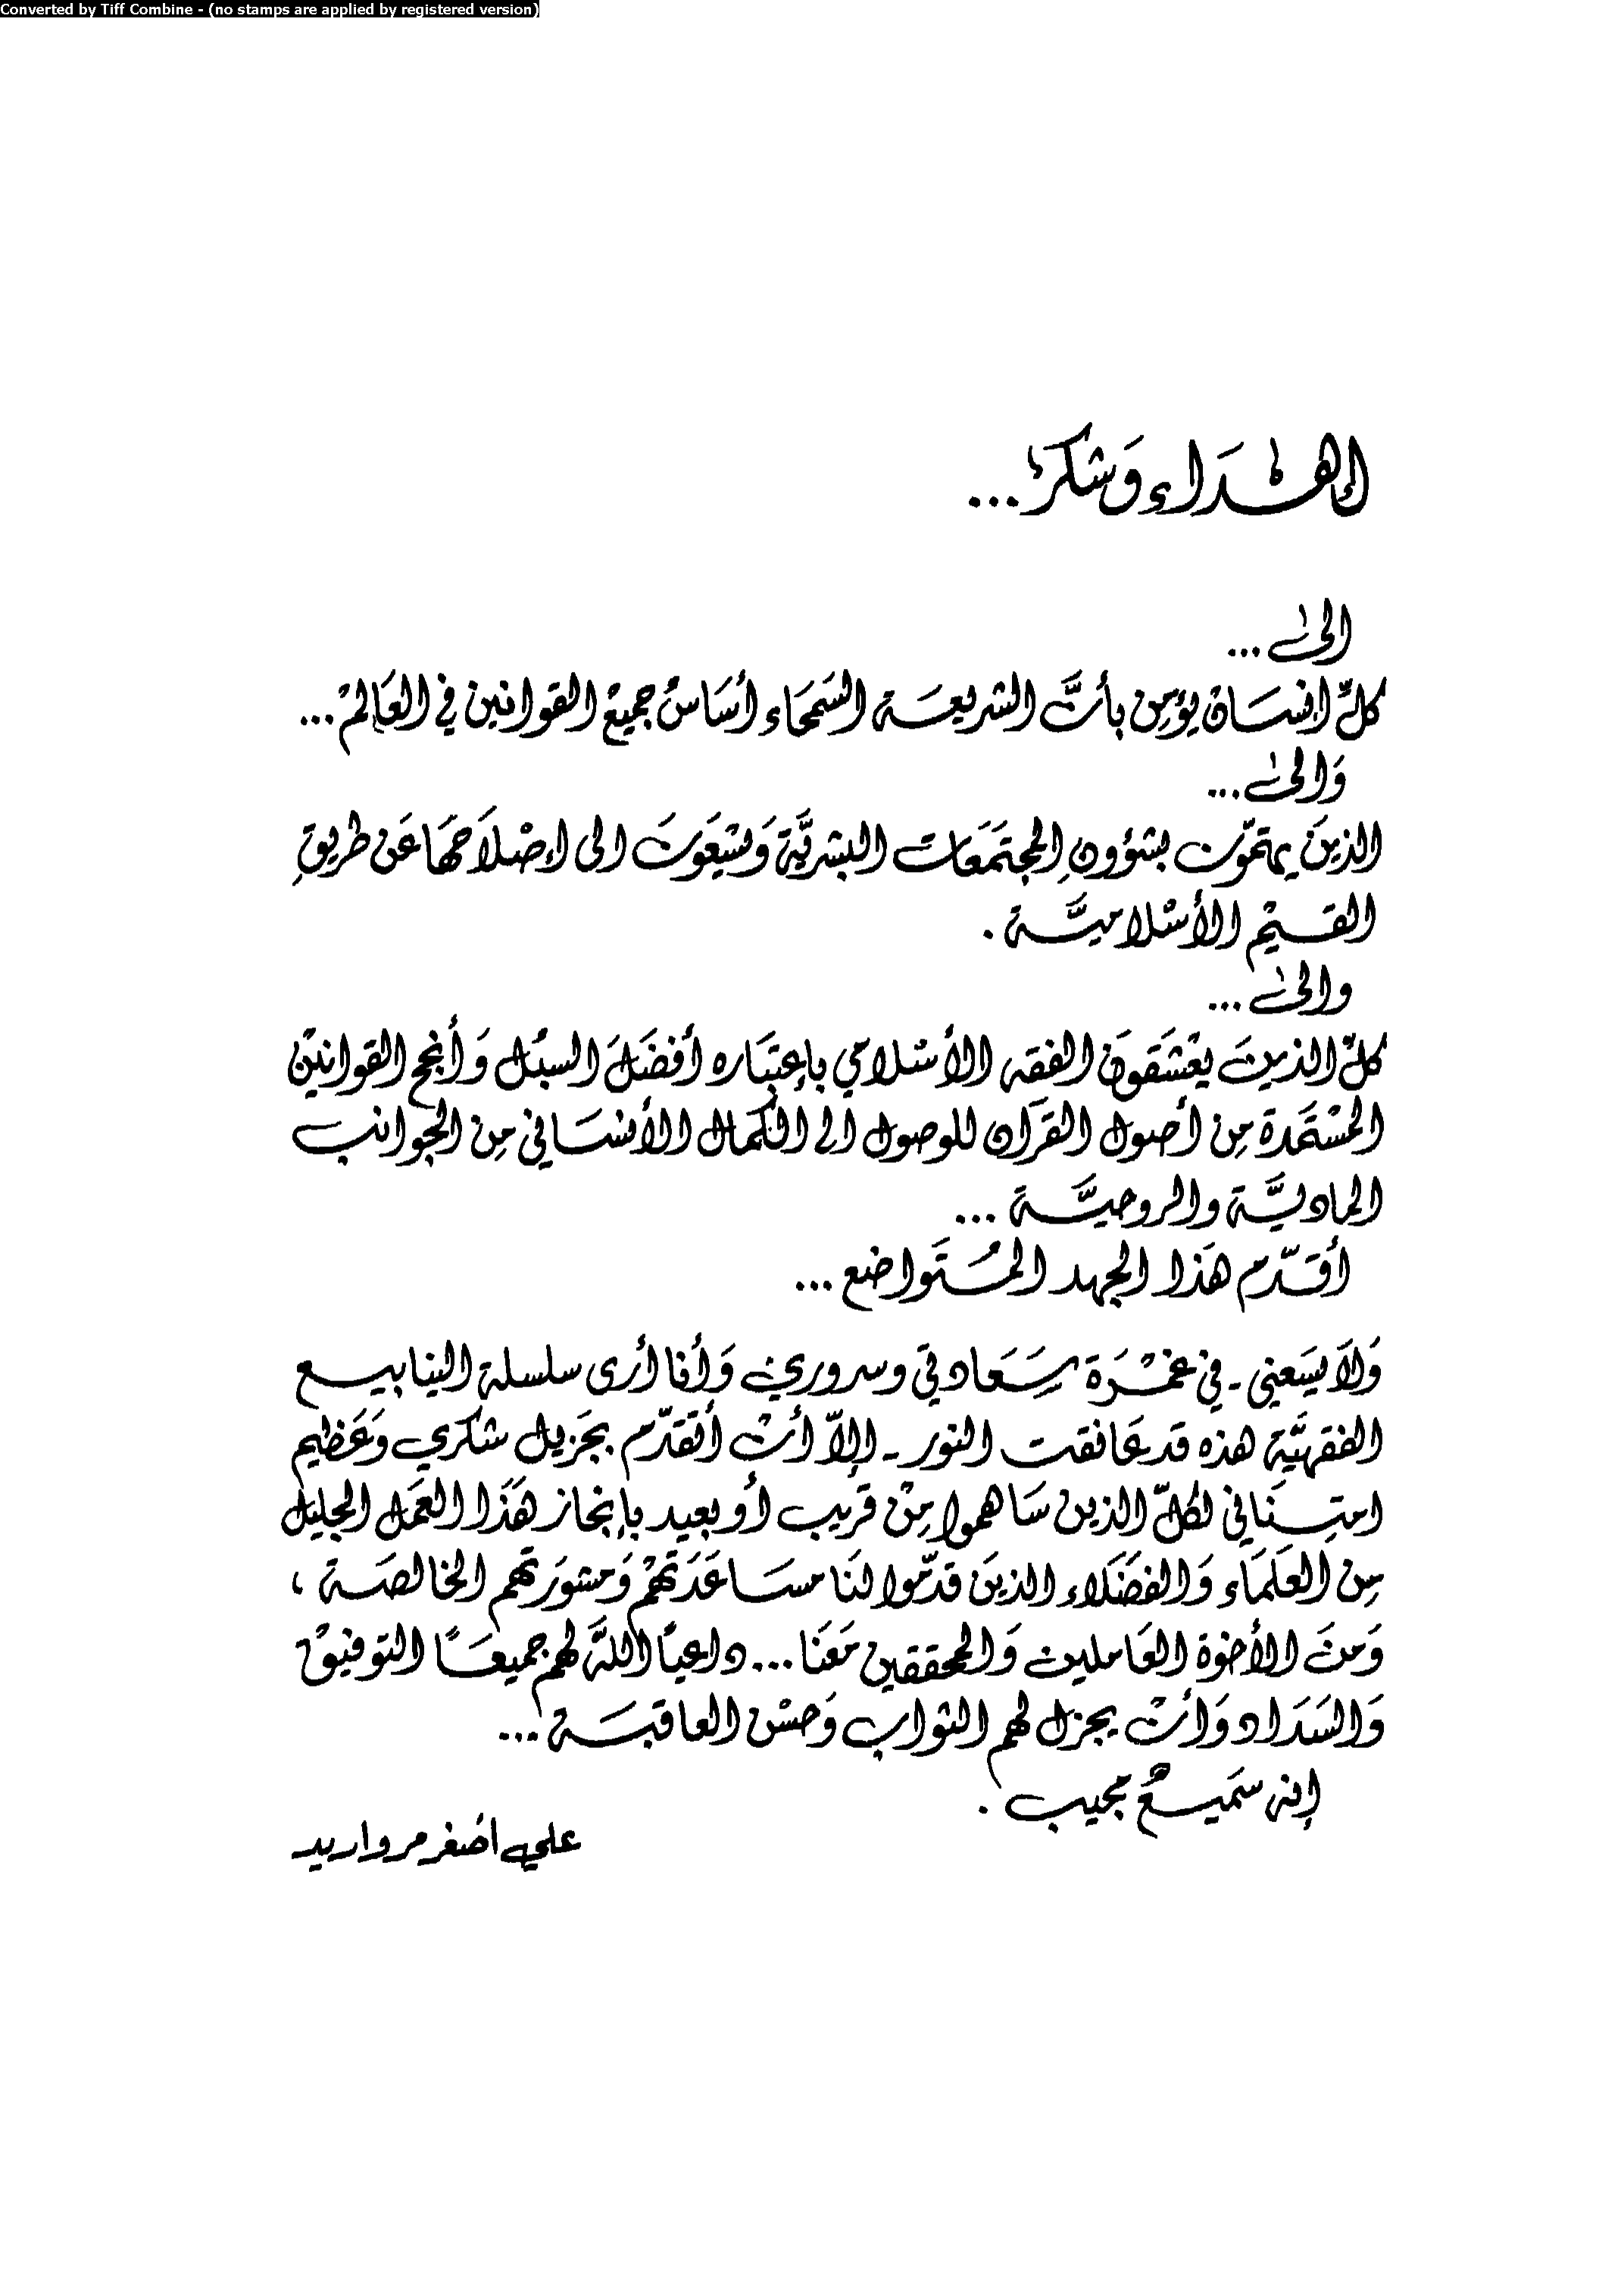 Converted by Tiff Combine - (no stamps are applied by registered version)
إهداء وَشكرٌ...
الى...
كلِّ إنسَان يؤمِن بأنَّ الشريعَة السَمحَاء أسَاسُ جميع القوانين في العَالم...
وَالى...
الذينَ يهتمّون بشؤونِ المجتَمَعات البشريَّة وَيسْعَونَ الى إصْلاَحهَا عَن طريقِ
القيَم الأسْلاميَّة .
والى...
كلِّ الذينَ يعْشَقونَ الفقه الأسْلامي بإعتبَاره أفضَلَ السبُل وَأنجح القوانينْ
المسْتمَدة مِن أصول القرآن للوصول الى الكمال الأنسَاني مِن الجوانب
الماديَّة والروحيَّة ...
أقدّم هَذا الجهد المتَواضع ...
وَلاَ يسَعني - في غمْرَة سَعادتي وسروري وَأنا أرى سلسلة الينابيع
الفقهيَّة هذه قد عَانقت النور - إلاّ أنْ أتقدّم بجَزيل شكري وَعَظيم
امتِنَاني لكلّ الذين سَاهموا مِنْ قريب أو بعيد بإنجاز هَذَا العمَل الجليل
مِن العلَمَاء وَالفضَلاء الذينَ قدّموا لنَا مسَاعَدَتهمْ وَمشورَتهم الخالصَة ،
وَمنَ الأخوة العَاملين وَالمحققين مَعَنا ... داعيًا اللهَ لهم جميعًا التوفيقْ
وَالسَدَاد وَأنْ يجزل لهم الثواب وَحسْن العاقبَة ...
إنه سَميعٌ مجيب .
علي اصْغر مرواريد